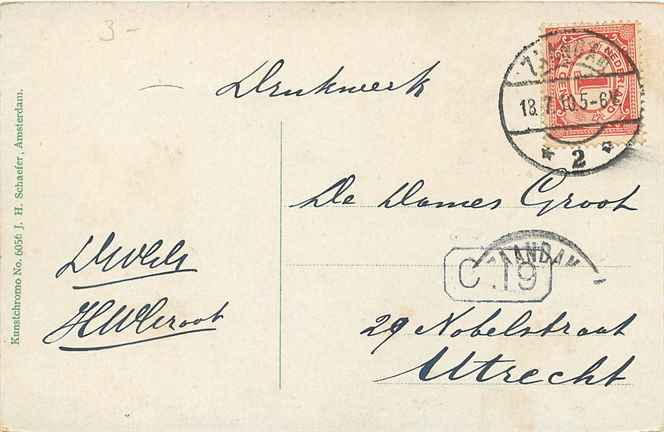 3-
Drukwerk
ZAANDAM
18.7.10.5-6N
2
NEDERLAND
1
De Dames Groot
C.19
ZAANDAM
29 Nobelstraat
Utrecht
Kunstchromo No. 6056 J. H. Schaefer, Amsterdam.